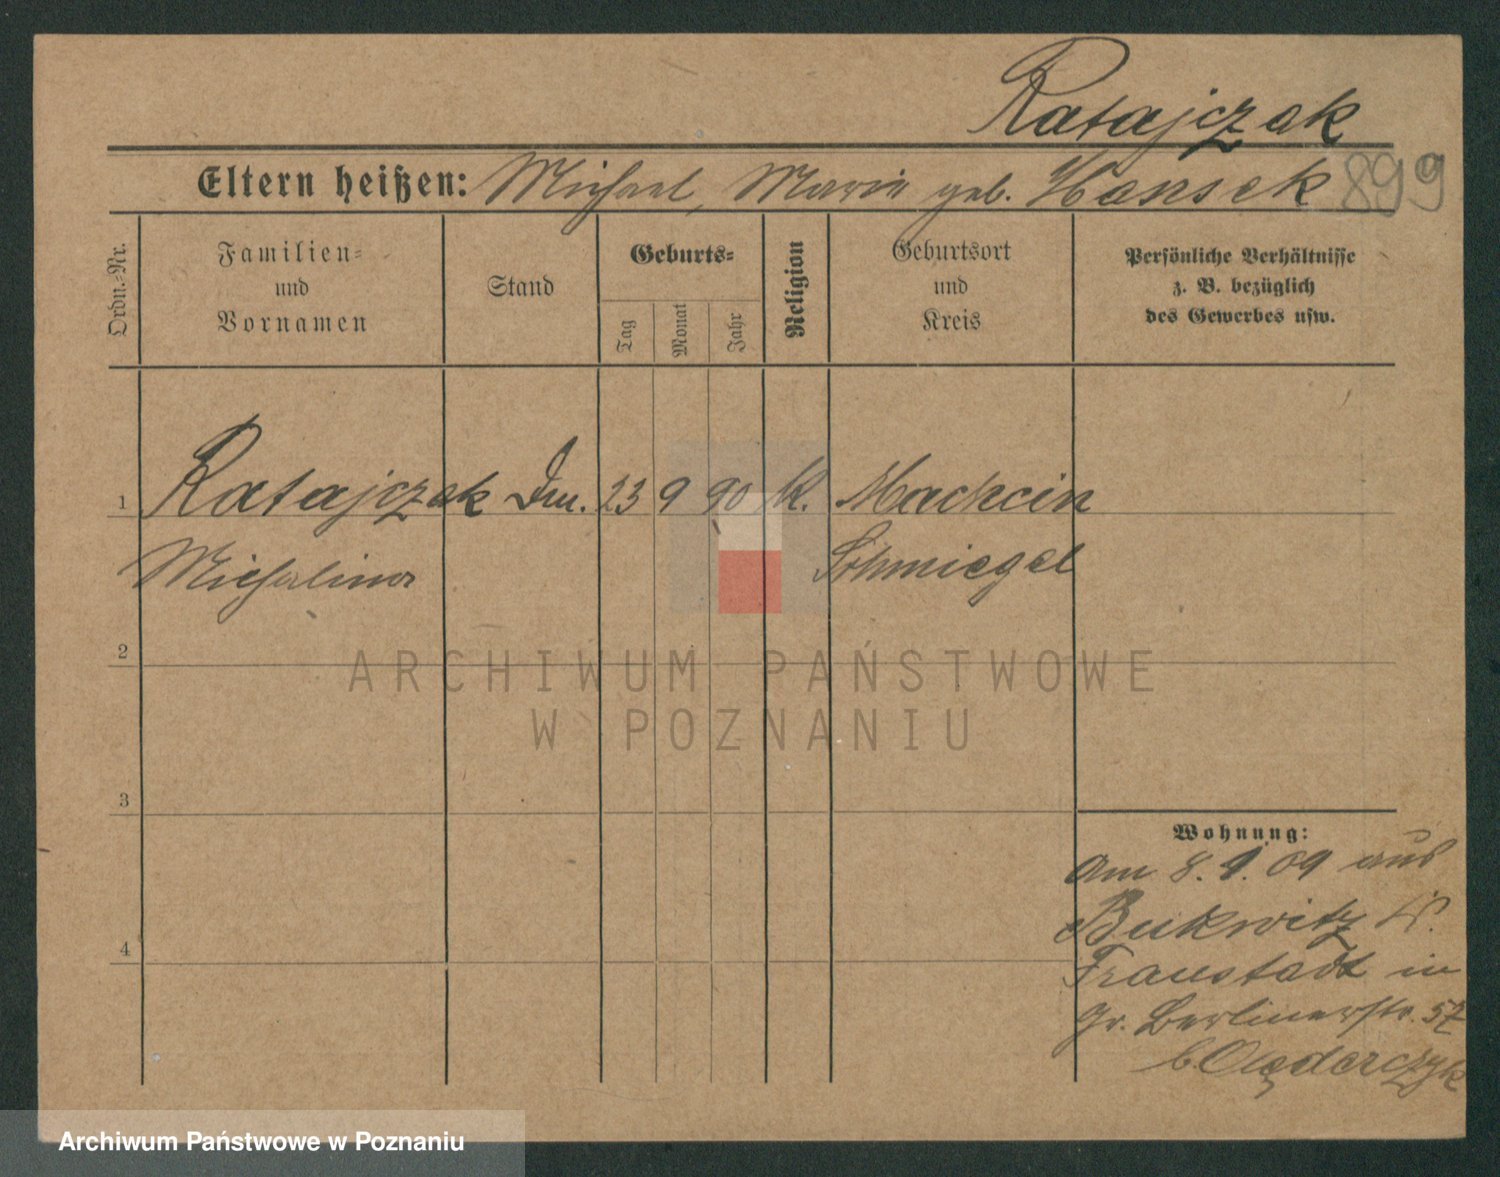 Ratajczak
Eltern heißen: Michael, Marie geb. Hansek 899
Ordn.=Nr.
Familien=
und
Vornamen
Stand
Geburts=
Tag
Monat
Jahr
Religion
Geburtsort
und
Kreis
Persönliche Verhältnisse
z. B. bezüglich
des Gewerbes usw.
1 Ratajczak 23 9 90 K. Machcin
Michalina Schmiegel
2
3
4
Wohnung:
Am 8. 9. 09 aus
Bukwitz
Fraustadt in
Gr. Berlinerstr. 57
b. Olędarczyk
ARCHIWUM PAŃSTWOWE
W POZNANIU
Archiwum Państwowe w Poznaniu